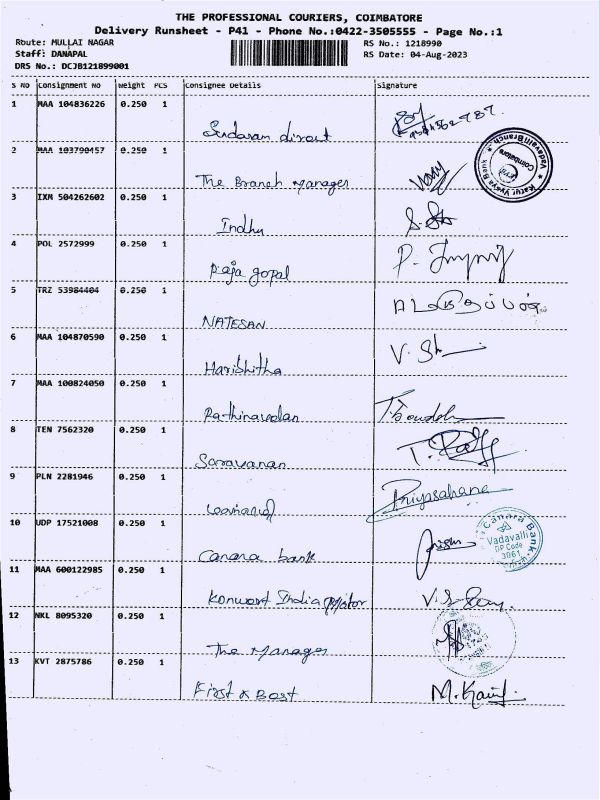 THE PROFESSIONAL COURIERS, COIMBATORE
Delivery Runsheet - P41 - Phone No.:0422-3505555 - Page No.:1
Route: MULLAI NAGAR
RS No.: 1218990
Staff: DANAPAL
RS Date: 04-Aug-2023
DRS No.: DCJB121899001
S NO Consignment NO Weight PCS Consignee Details Signature
1 MAA 104836226 0.250 1
Sundaram direct
2 MAA 103790457 0.250 1
The Branch Manager
Karur Vysya Bank
Vadavalli Branch
Coimbatore
3 IXM 504262602 0.250 1
Indhu
4 POL 2572999 0.250 1
Raja gopal
5 TRZ 53984404 0.250 1
NATESAN
6 MAA 104870590 0.250 1
Harishitha
V. Sh
7 MAA 100824050 0.250 1
Rathinavelan
8 TEN 7562320 0.250 1
Saravanan
9 PLN 2281946 0.250 1
Priyasahana
10 UDP 17521008 0.250 1
Canara bank
Canara Bank
Vadavalli
DP Code
3061
11 MAA 600122985 0.250 1
India Motor
12 NKL 8095320 0.250 1
The Manager
13 KVT 2875786 0.250 1
First & Best